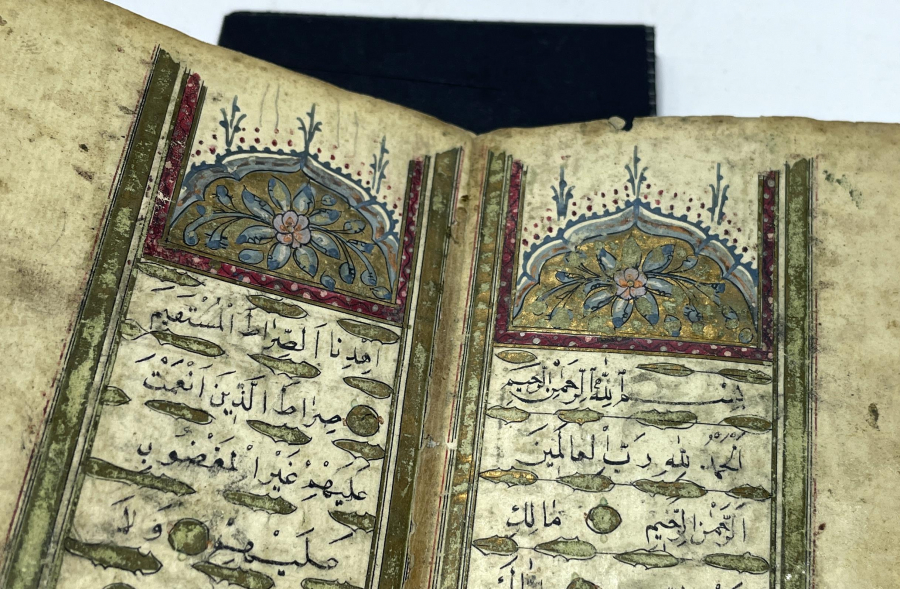 بِسْمِ اللّٰهِ الرَّحْمٰنِ الرَّحِيمِ
اَلْحَمْدُ لِلّٰهِ رَبِّ الْعَالَمِينَ
اَلرَّحْمٰنِ الرَّحِيمِ مَالِكِ
اِهْدِنَا الصِّرَاطَ الْمُسْتَقِيمَ
صِرَاطَ الَّذِينَ اَنْعَمْتَ
عَلَيْهِمْ غَيْرِ الْمَغْضُوبِ
عَلَيْهِمْ وَلَا